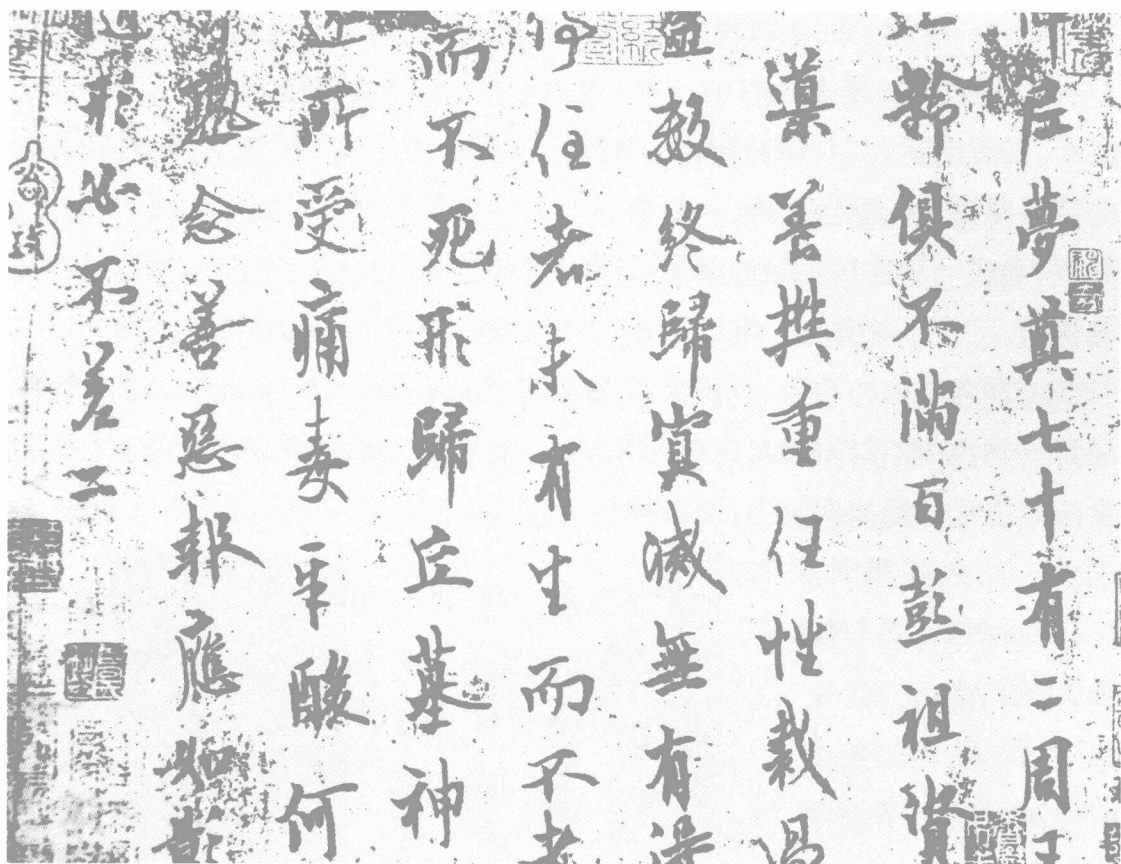 仲尼夢奠七十有二周王
齡俱不滿百彭祖資
善樊重任性裁過
盈數終歸冥滅無有得
停住者未有生而不老
而不死形歸丘墓神
還所受痛毒辛酸何
熟念善惡報應如影
隨形必不差二